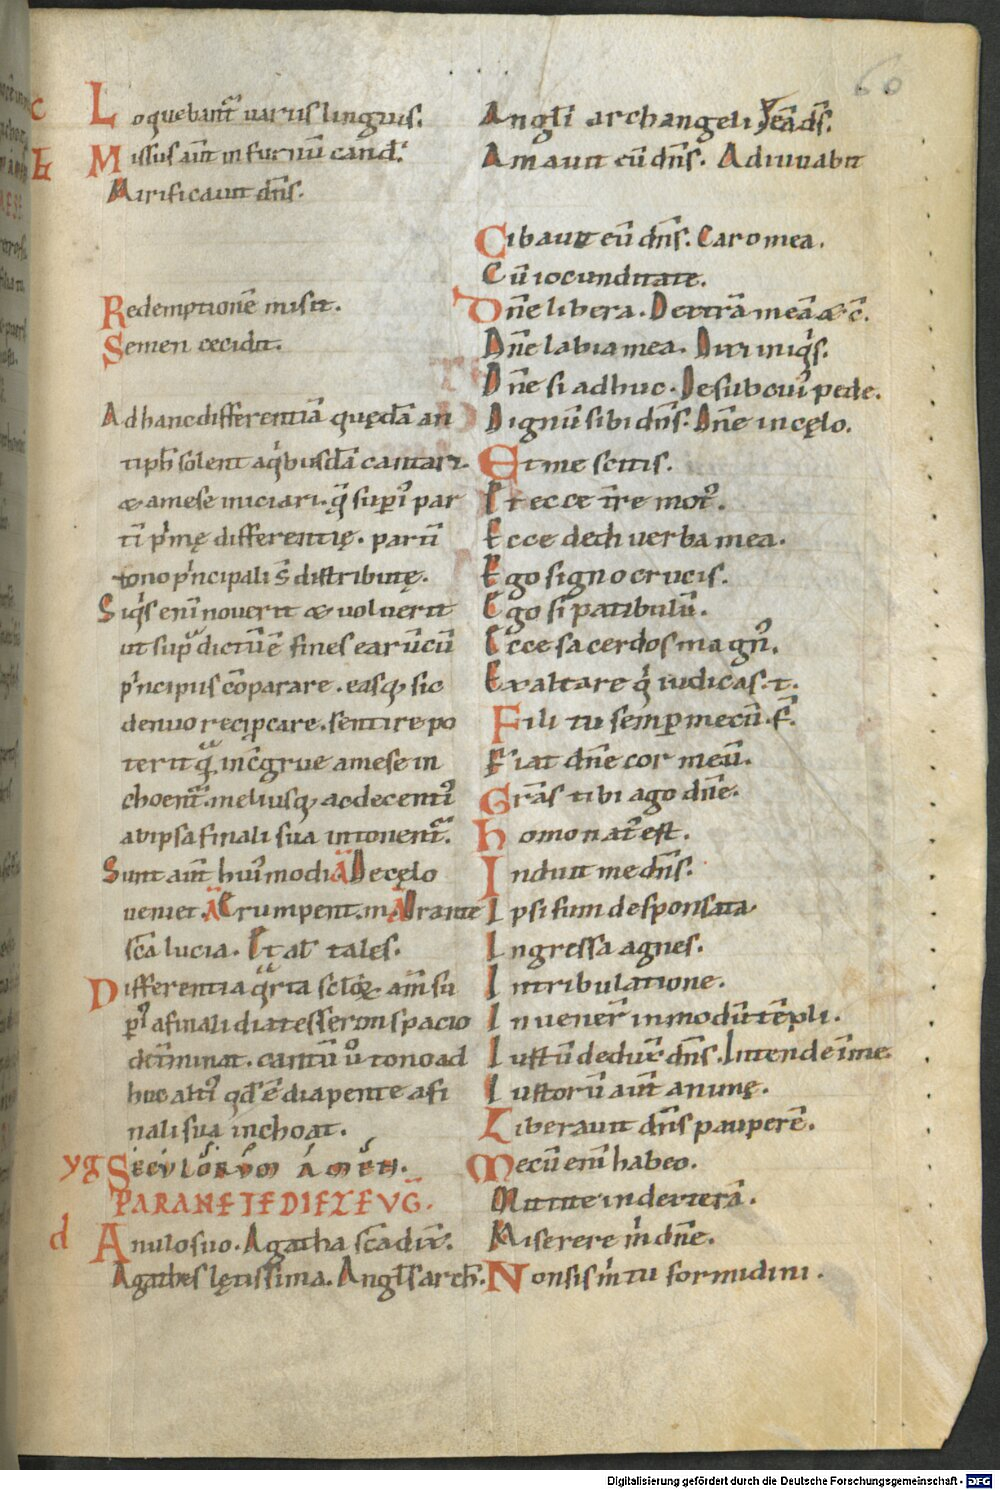 60
c Loquebant᷒ uariis linguis.
E Missus aut̄ in furnū cand̄.
Mirificauit dn̄s.
Redemptionē misit.
Semen cecidit.
Ad hanc differentiā quędā an
tiph̄ solent aq̇busdā cantari.
& amese iniciari. q̄ sup̄i par
tī p̍mę differentię. parū
tono p̍ncipali s̄ distributę.
Siq̍s enī nouerit & uoluerit
ut sup̄ dictū ē fines earūcū
p̍ncipiis cōparare. easq; sic
denuo recip̍care. sentire po
terit
choent᷒. meliusq; ac decenti᷒
ab ipsa finali sua intonent᷒.
Sunt aut̄ hui᷒ modi. a De cęlo
ueniet. a Erumpent. m̄. a Orante
sc̄a lucia. Et al̄ tales.
Differentia q̍rta
p̄i a finali diatesseron spacio
det̄minat. cantū ů tono ad
huc alti᷒ qd̄ ē diapente a fi
nali sua inchoat.
yg Seculorum amen.
PARANETE DIEZEVḠ.
d Anulo suo. Agatha sc̄a dix̄.
Agathes lętissima. Angl̄s arch̄.
Angl̄i archangeli
Amauit eū dn̄s. Adiuuabit
Cibauit eū dn̄s. Caro mea.
Cū iocunditate.
Dn̄e libera. Dexterā meā & c̄.
Dn̄e labia mea. Diri iniq̍s.
Dn̄e si adhuc. De sub cui᷒ pede.
Dignū sibi dn̄s. Dn̄e in cęlo.
Et me scitis.
Et ecce t̄re mot᷒.
Ecce dedi uerba mea.
Ego signo crucis.
Ego si patibulū.
Ecce sacerdos magn᷒.
Exaltare q̍ iudicas. t.
Fili tu semp̄ mecū. f̄.
Fiat dn̄e cor meū.
Gr̄as tibi ago dn̄e.
Homo nat᷒ est.
Induit me dn̄s.
Ipsi sum desponsata
Ingressa agnes.
In tribulatione.
Inuener̄ in modū tēpli.
Iustū dedux̄ dn̄s. Intende ī me.
Iustorū aut̄ animę.
Liberauit dn̄s pauperē.
Mecū enī habeo.
Mittite in dexterā.
Miserere m̍ dn̄e.
Non sis m̍ tu formidini.
Digitalisierung gefördert durch die Deutsche Forschungsgemeinschaft - DFG